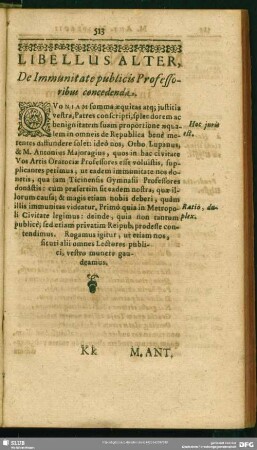 513
LIBELLUS ALTER,
De Immunitate publicis Professo-
ribus concedenda.
QVONIAM summa æquitas atq; justitia
vestra, Patres conscripti, splendorem ac
benignitatem suam proportione æqua-
lem in omneis de Republica benè me-
renteis diffundere solet: ideò nos, Otho Lupanus,
& M. Antonius Majoragius, quos in hac civitate
Vos Artis Oratoriæ Professores esse voluistis, sup-
plicantes petimus, ut eadem immunitate nos do-
netis, qua jam Ticinensis Gymnasii Professores
donastis: cum præsertim eò eadem nostra, quæ il-
lorum causa, & magis etiam nobis deberi, quàm
illis immunitas videatur, Primò quia in Metropo-
li Civitate legimus: deinde, quia non tantum
publicè, sed etiam privatim Reipub. prodesse con-
tendimus. Rogamus igitur, ut etiam nos,
sicuti alii omnes Lectores publi-
ci, vestro munere gau-
deamus.
Hoc juris
est.
Ratio, du-
plex.
Kk
M. ANT,
SLUB
DFG